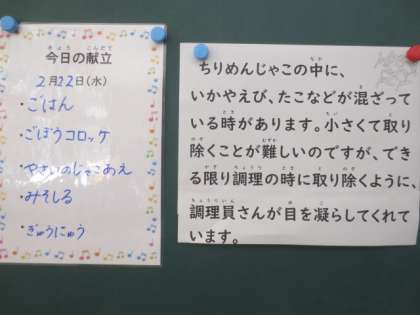 今日の献立
2月22日(水)
・ごはん
・ごぼうコロッケ
・やさいのじゃこあえ
・みそしる
・ぎゅうにゅう
ちりめんじゃこの中に、
いかやえび、たこなどが混ざって
いる時があります。小さくて取り
除くことが難しいのですが、でき
る限り調理の時に取り除くように、
調理員さんが目を凝らしてくれて
います。